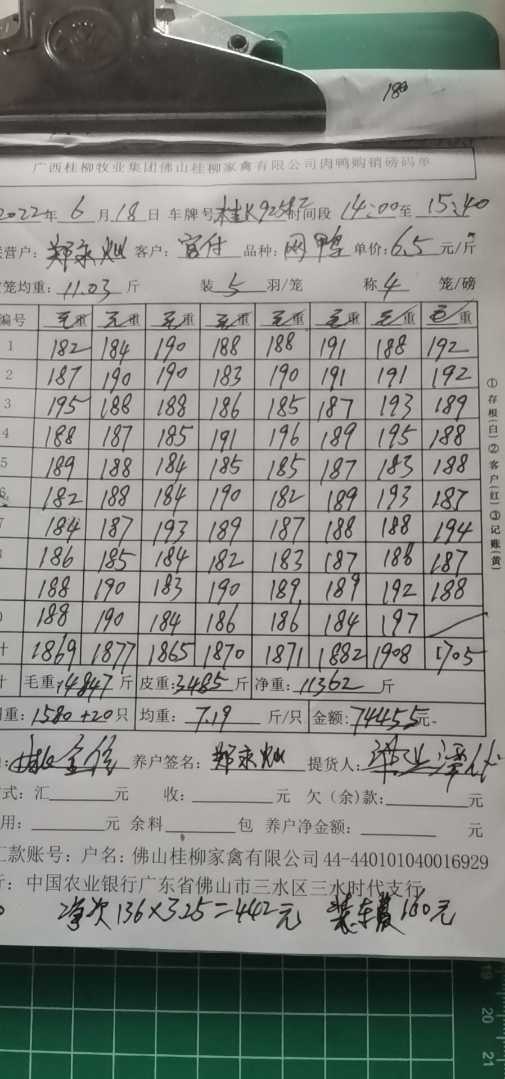 180
广西桂柳牧业集团佛山桂柳家禽有限公司肉鸭购销磅码单
2022年 6 月 18 日 车牌号 桂K 时间段 14:00至 15:40
营户: 郑永灿 客户: 品种: 单价: 6.5 元/斤
笼均重: 11.03 斤 装 5 羽/笼 称 4 笼/磅
编号 毛重 毛重 毛重 毛重 毛重 毛重 毛重 毛重
1 182 184 190 188 188 191 188 192
2 187 190 190 183 190 191 191 192
3 195 188 188 186 185 187 193 189
4 188 187 185 191 196 189 195 188
5 189 188 184 185 185 187 183 188
6 182 188 184 190 182 189 193 187
7 184 187 193 189 187 188 188 194
186 185 184 182 183 187 188 187
188 190 183 190 189 189 192 188
188 190 184 186 186 184 197
计 1869 1877 1865 1870 1871 1882 1908 1705
计 毛重: 14847 斤 皮重: 3485 斤 净重: 11362 斤
重: 1580+20 只 均重: 7.19 斤/只 金额: 74455 元
养户签名: 郑永灿 提货人:
式: 汇 元 收: 元 欠(余)款: 元
用: 元 余料 包 养户净金额: 元
汇款账号: 户名: 佛山桂柳家禽有限公司 44-440101040016929
行: 中国农业银行广东省佛山市三水区三水时代支行
136×3.25=442元 装车费 160元
①存根(白)②客户(红)③记账(黄)
19
20
21